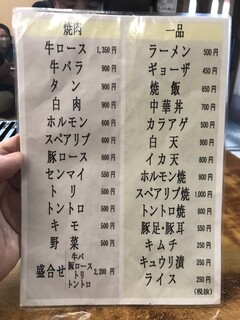 焼肉
牛ロース 1,350円
牛バラ 900円
タン 900円
白肉 900円
ホルモン 600円
スペアリブ 600円
豚ロース 600円
センマイ 550円
トリ 550円
トントロ 500円
キモ 500円
野菜 500円
盛合せ 牛バラ 豚ロース トリ トントロ 2,200円
一品
ラーメン 500円
ギョーザ 450円
焼飯 650円
中華丼 700円
カラアゲ 500円
白天 900円
イカ天 800円
ホルモン焼 900円
スペアリブ焼 1,000円
トントロ焼 800円
豚足・豚耳 500円
キムチ 250円
キュウリ漬 250円
ライス 250円
(税抜)